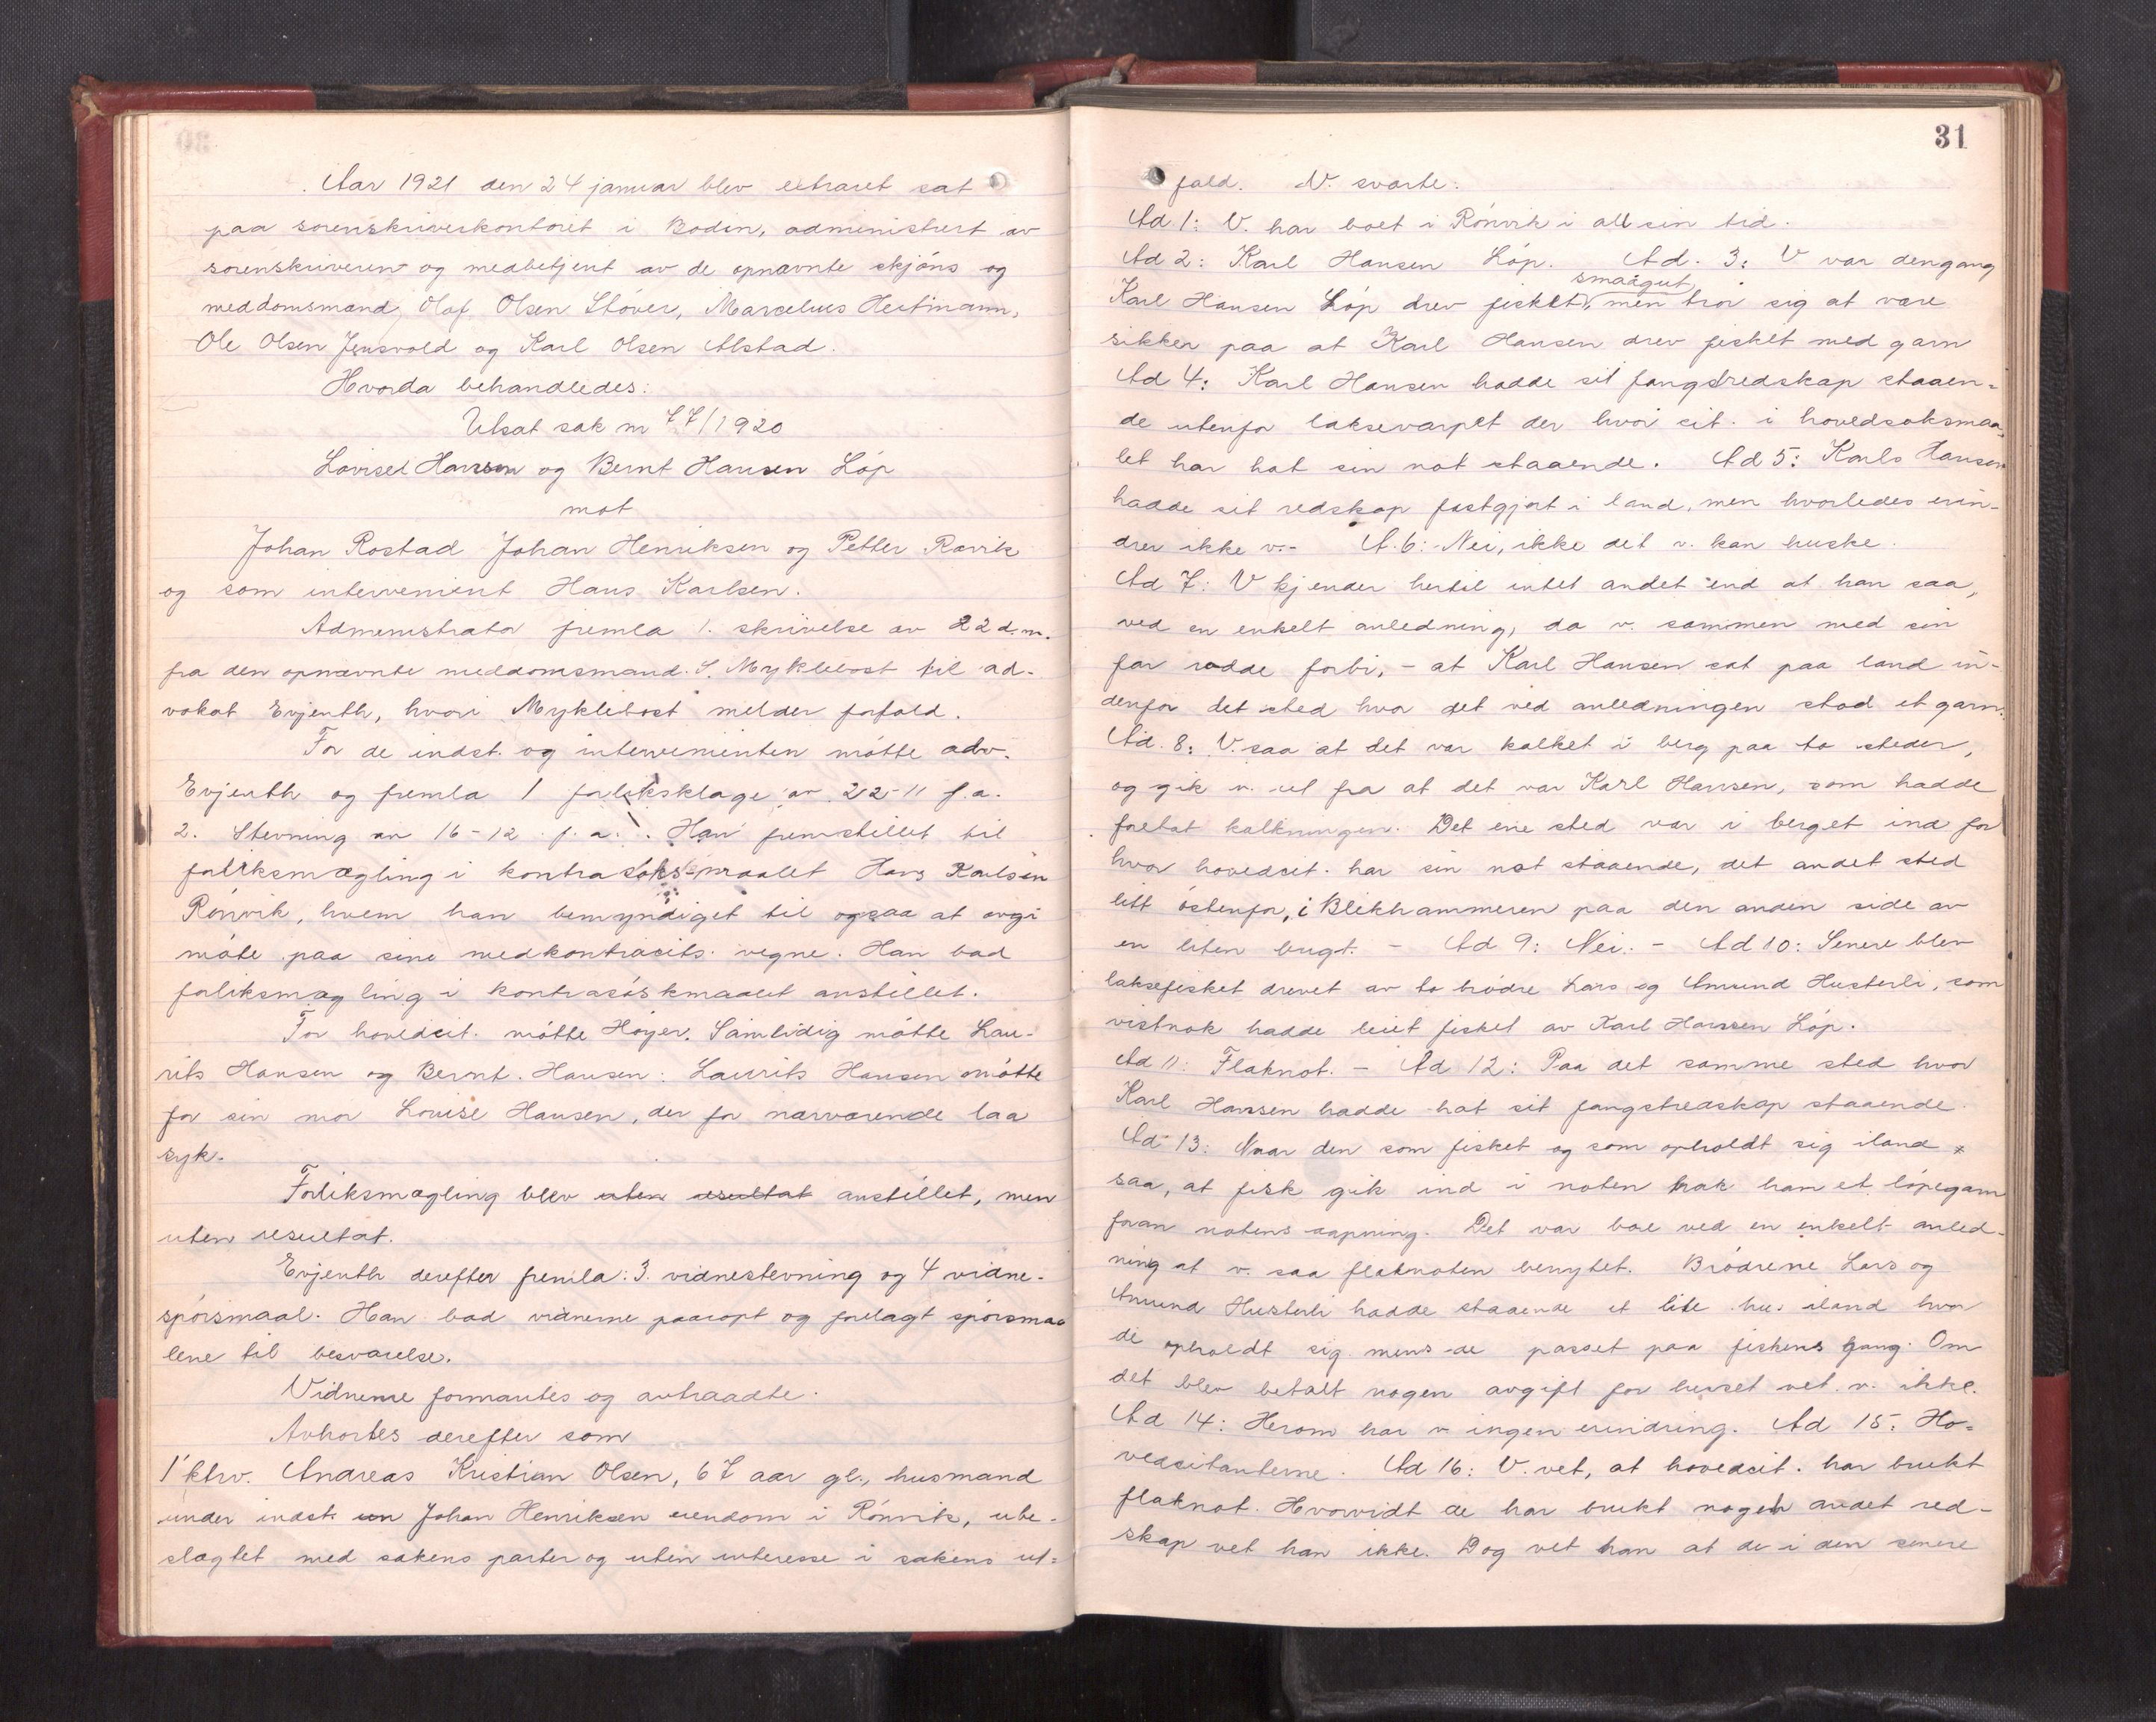 Aar 1921 den 24 januar blev extraret sat
paa sorenskriverkontoret i Bodin, administrert av
sorenskriveren og medbetjent av de opnævnte skjöns og
meddomsmænd, Olaf Olsen Stöver, Marcelius Hertmann,
Ole Olsen Jensvold og Karl Olsen Alstad.
Hvorda behandledes:
Utsat sak nr 77/1920
Lovise Hansen og Bernt Hansen Löp
mot
Johan Rostad Johan Henriksen og Petter Ravik
og som intervenient Hans Karlsen.
Administrator fremla 1. skrivelse av 22 d.m.
fra den opnævnte meddomsmand S. Myklebost til ad-
vokat Evjenth, hvori Myklebost melder forfald.
For de indst. og intervenienten mötte adv.
Evjenth og fremla 1 forliksklage av 22-11 f.a.
2. Stevning av 16-12 f.a. Han fremstillet til
forliksmægling i kontrasöksmaalet Hans Karlsen
Rönvik, hvem han bemyndiget til ogsaa at avgi
möte paa sine medkontracits. vegne. Han bad
forliksmægling i kontrasöksmaalet anstillet.
For hovedcit. mötte Höyer. Samtidig mötte Lau-
rits Hansen og Bernt Hansen: Laurits Hansen mötte
for sin mor Lovise Hansen, der for nærværende laa
syk.
Forliksmægling blev uten resultat anstillet, men
uten resultat.
Evjenth derefter fremla: 3. vidnestevning og 4 vidne-
spörsmaal. Han bad vidnerne paaropt og forelagt spörsmaa
lene til besvarelse.
Vidnerne formantes og avtraadte.
Avhörtes derefter som
1' ktrv. Andreas Kristian Olsen, 67 aar gl., husmand
under indst. Johan Henriksen eiendom i Rönvik, ube-
slægtet med sakens parter og uten interesse i sakens ut=
31
fald. V. svarte:
Ad 1: V. har boet i Rönvik i all sin tid.
Ad 2: Karl Hansen Löp. Ad. 3: V var dengang
smaagut,
Karl Hansen Löp drev fisket, men tror sig at være
sikker paa at Karl Hansen drev fisket med garn
Ad 4: Karl Hansen hadde sit fangstredskap staaen=
de utenfor laksevarpet der hvor cit. i hovedsöksmaa=
let har hat sin not staaende. Ad 5: Karls Hansen
hadde sit redskap fastgjort i land, men hvorledes erin-
drer ikke v.- A. 6: Nei, ikke det v. kan huske.
Ad 7: V kjender hertil intet andet end at han saa,
ved en enkelt anledning, da v. sammen med sin
far rodde forbi, - at Karl Hansen sat paa land in-
denfor det sted hvor det ved anledningen stod et garn.
Ad. 8: V. saa at det var kalket i berg paa to steder,
og gik v. ut fra at det var Karl Hansen, som hadde
foretat kalkningen. Det ene sted var i berget ind for
hvor hovedcit. har sin not staaende, det andet sted
litt östenfor, i Blikhammeren paa den anden side av
en liten bugt. - Ad 9: Nei. - Ad 10: Senere blev
laksefisket drevet av to brödre Lars og Amund Husterli, som
vistnok hadde leiet fisket av Karl Hansen Löp.
Ad 11: Flaknot. - Ad 12: Paa det samme sted hvor
Karl Hansen hadde hat sit fangstredskap staaende.
Ad 13: Naar den som fisket og som opholdt sig iland
saa, at fisk gik ind i noten trak han et löpegarn
foran notens aapning. Det var bare ved en enkelt anled-
ning at v. saa flaknoten benyttet. Brödrene Lars og
Amund Husterli hadde staaende et lite hus iland hvor
de opholdt sig mens de passet paa fiskens gang. Om
det blev betalt nogen avgift for huset vet v. ikke.
Ad 14: Herom har v ingen erindring. Ad 15: Ho=
vedcitanterne. Ad 16: V. vet, at hovedcit. har brukt
flaknot. Hvorvidt de har brukt nogen andet red-
skap vet han ikke. Dog vet han at de i den senere